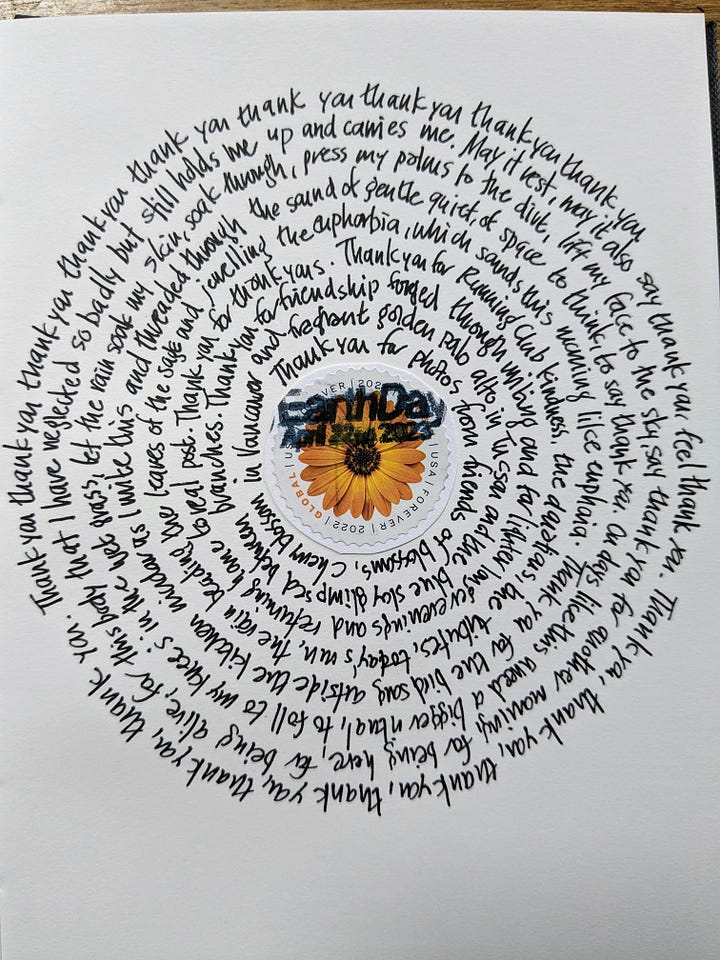 Thank you for photos from friends of blossoms, cherry blossom in Vancouver and fragrant golden Palo alto in Tucson and the blue sky glimpsed between branches. Thank you for friendship forged through writing and for lighter longer evenings and returning home to real post. Thank you for thank yous. Thank you for Running Club kindness, the devotions, the tributes, today's run, the rain beading the leaves of the sage and jewelling the euphorbia, which sounds this morning like euphoria. Thank you for the bird song outside the kitchen window as I write this and threaded through the sound of gentle quiet, of space to think, to say thank you. On days like this I need a bigger ritual, to fall to my knees in the wet grass, let the rain soak my skin, soak through, press my palms to the dirt, lift my face to the sky, say thank you for another morning, for being here, for being alive, for this body that I have neglected so badly but still holds me up and carries me. May it rest, may it also say thank you, feel thank you. Thank you, thank you, thank you, thank you, thank you, thank you, thank you, thank you. Thank you thank you thank you thank you thank you thank you thank you thank you thank you thank you
EarthDay
April 22nd 2023
GLOBAL | USA | FOREVER | 2022 |